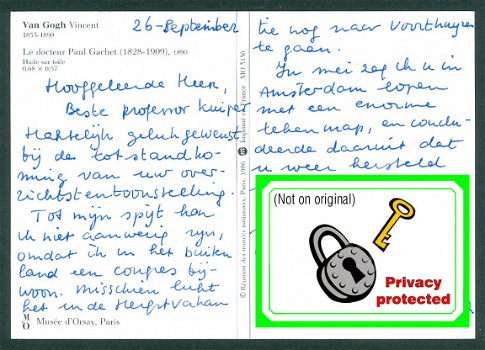 Van Gogh Vincent
1853-1890
Le docteur Paul Gachet (1828-1909), 1890
Huile sur toile
0,68 x 0,57
26-September
Hooggeleerde Heer,
Beste professor Kuiper
Hartelijk gelukgewenst
bij de totstandko-
ming van uw over-
zichtstentoonstelling.
Tot mijn spijt kan
ik niet aanwezig zijn,
omdat ik in het buiten
land een congres bij-
woon. Misschien lukt
het in de Herfstvakan
M
O
Musée d'Orsay, Paris
© Réunion des musées nationaux, Paris, 1986
Imprimé en France
MO 5150
tie nog naar Voorthuizen
te gaan.
In mei zag ik u in
Amsterdam lopen
met een enorme
tekenmap, en conclu-
deerde daaruit dat
u weer hersteld
(Not on original)
Privacy
protected